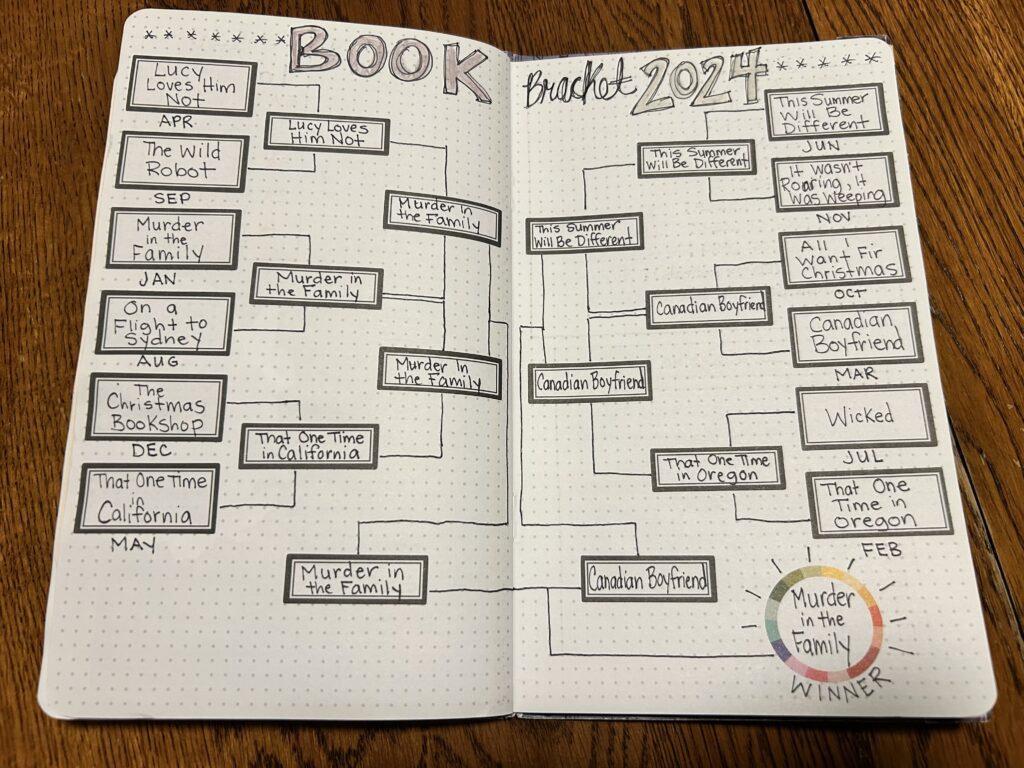 BOOK
Bracket 2024
Lucy
Loves Him
Not
APR
The Wild
Robot
SEP
Murder
in the
Family
JAN
On a
Flight to
Sydney
AUG
The
Christmas
Bookshop
DEC
That One Time
in
California
MAY
Lucy Loves
Him Not
Murder in
the Family
That One Time
in California
Murder In
the Family
Murder In
the Family
Murder in
the Family
This Summer
Will Be Different
Canadian Boyfriend
Canadian Boyfriend
This Summer
Will Be Different
Canadian Boyfriend
That One Time
in Oregon
This Summer
Will Be
Different
JUN
It Wasn't
Roaring, It
Was Weeping
NOV
All I
Want Fir
Christmas
OCT
Canadian
Boyfriend
MAR
Wicked
JUL
That One
Time in
Oregon
FEB
Murder
in the
Family
WINNER